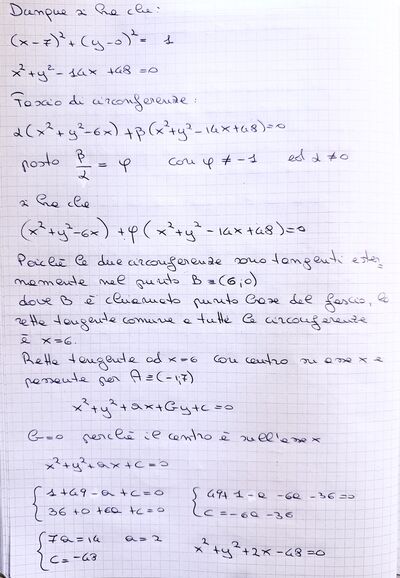 Dunque si ha che:
(x-7)² + (y-0)² = 1
x² + y² - 14x + 48 = 0
Fascio di circonferenze:
α(x² + y² - 6x) + β(x² + y² - 14x + 48) = 0
posto β/α = φ con φ ≠ -1 ed α ≠ 0
si ha che
(x² + y² - 6x) + φ(x² + y² - 14x + 48) = 0
Poiché le due circonferenze sono tangenti ester-
namente nel punto B ≡ (6,0)
dove B è chiamato punto base del fascio, la
retta tangente comune a tutte le circonferenze
è x = 6.
Retta tangente ad x = 6 con centro su asse x e
passante per A ≡ (-1,7)
x² + y² + ax + by + c = 0
b = 0 perché il centro è sull'asse x
x² + y² + ax + c = 0
{ 1 + 49 - a + c = 0 { 49 + 1 - a - 6a - 36 = 0
{ 36 + 0 + 6a + c = 0 { c = -6a - 36
{ 7a = 14 a = 2
{ c = -48 x² + y² + 2x - 48 = 0